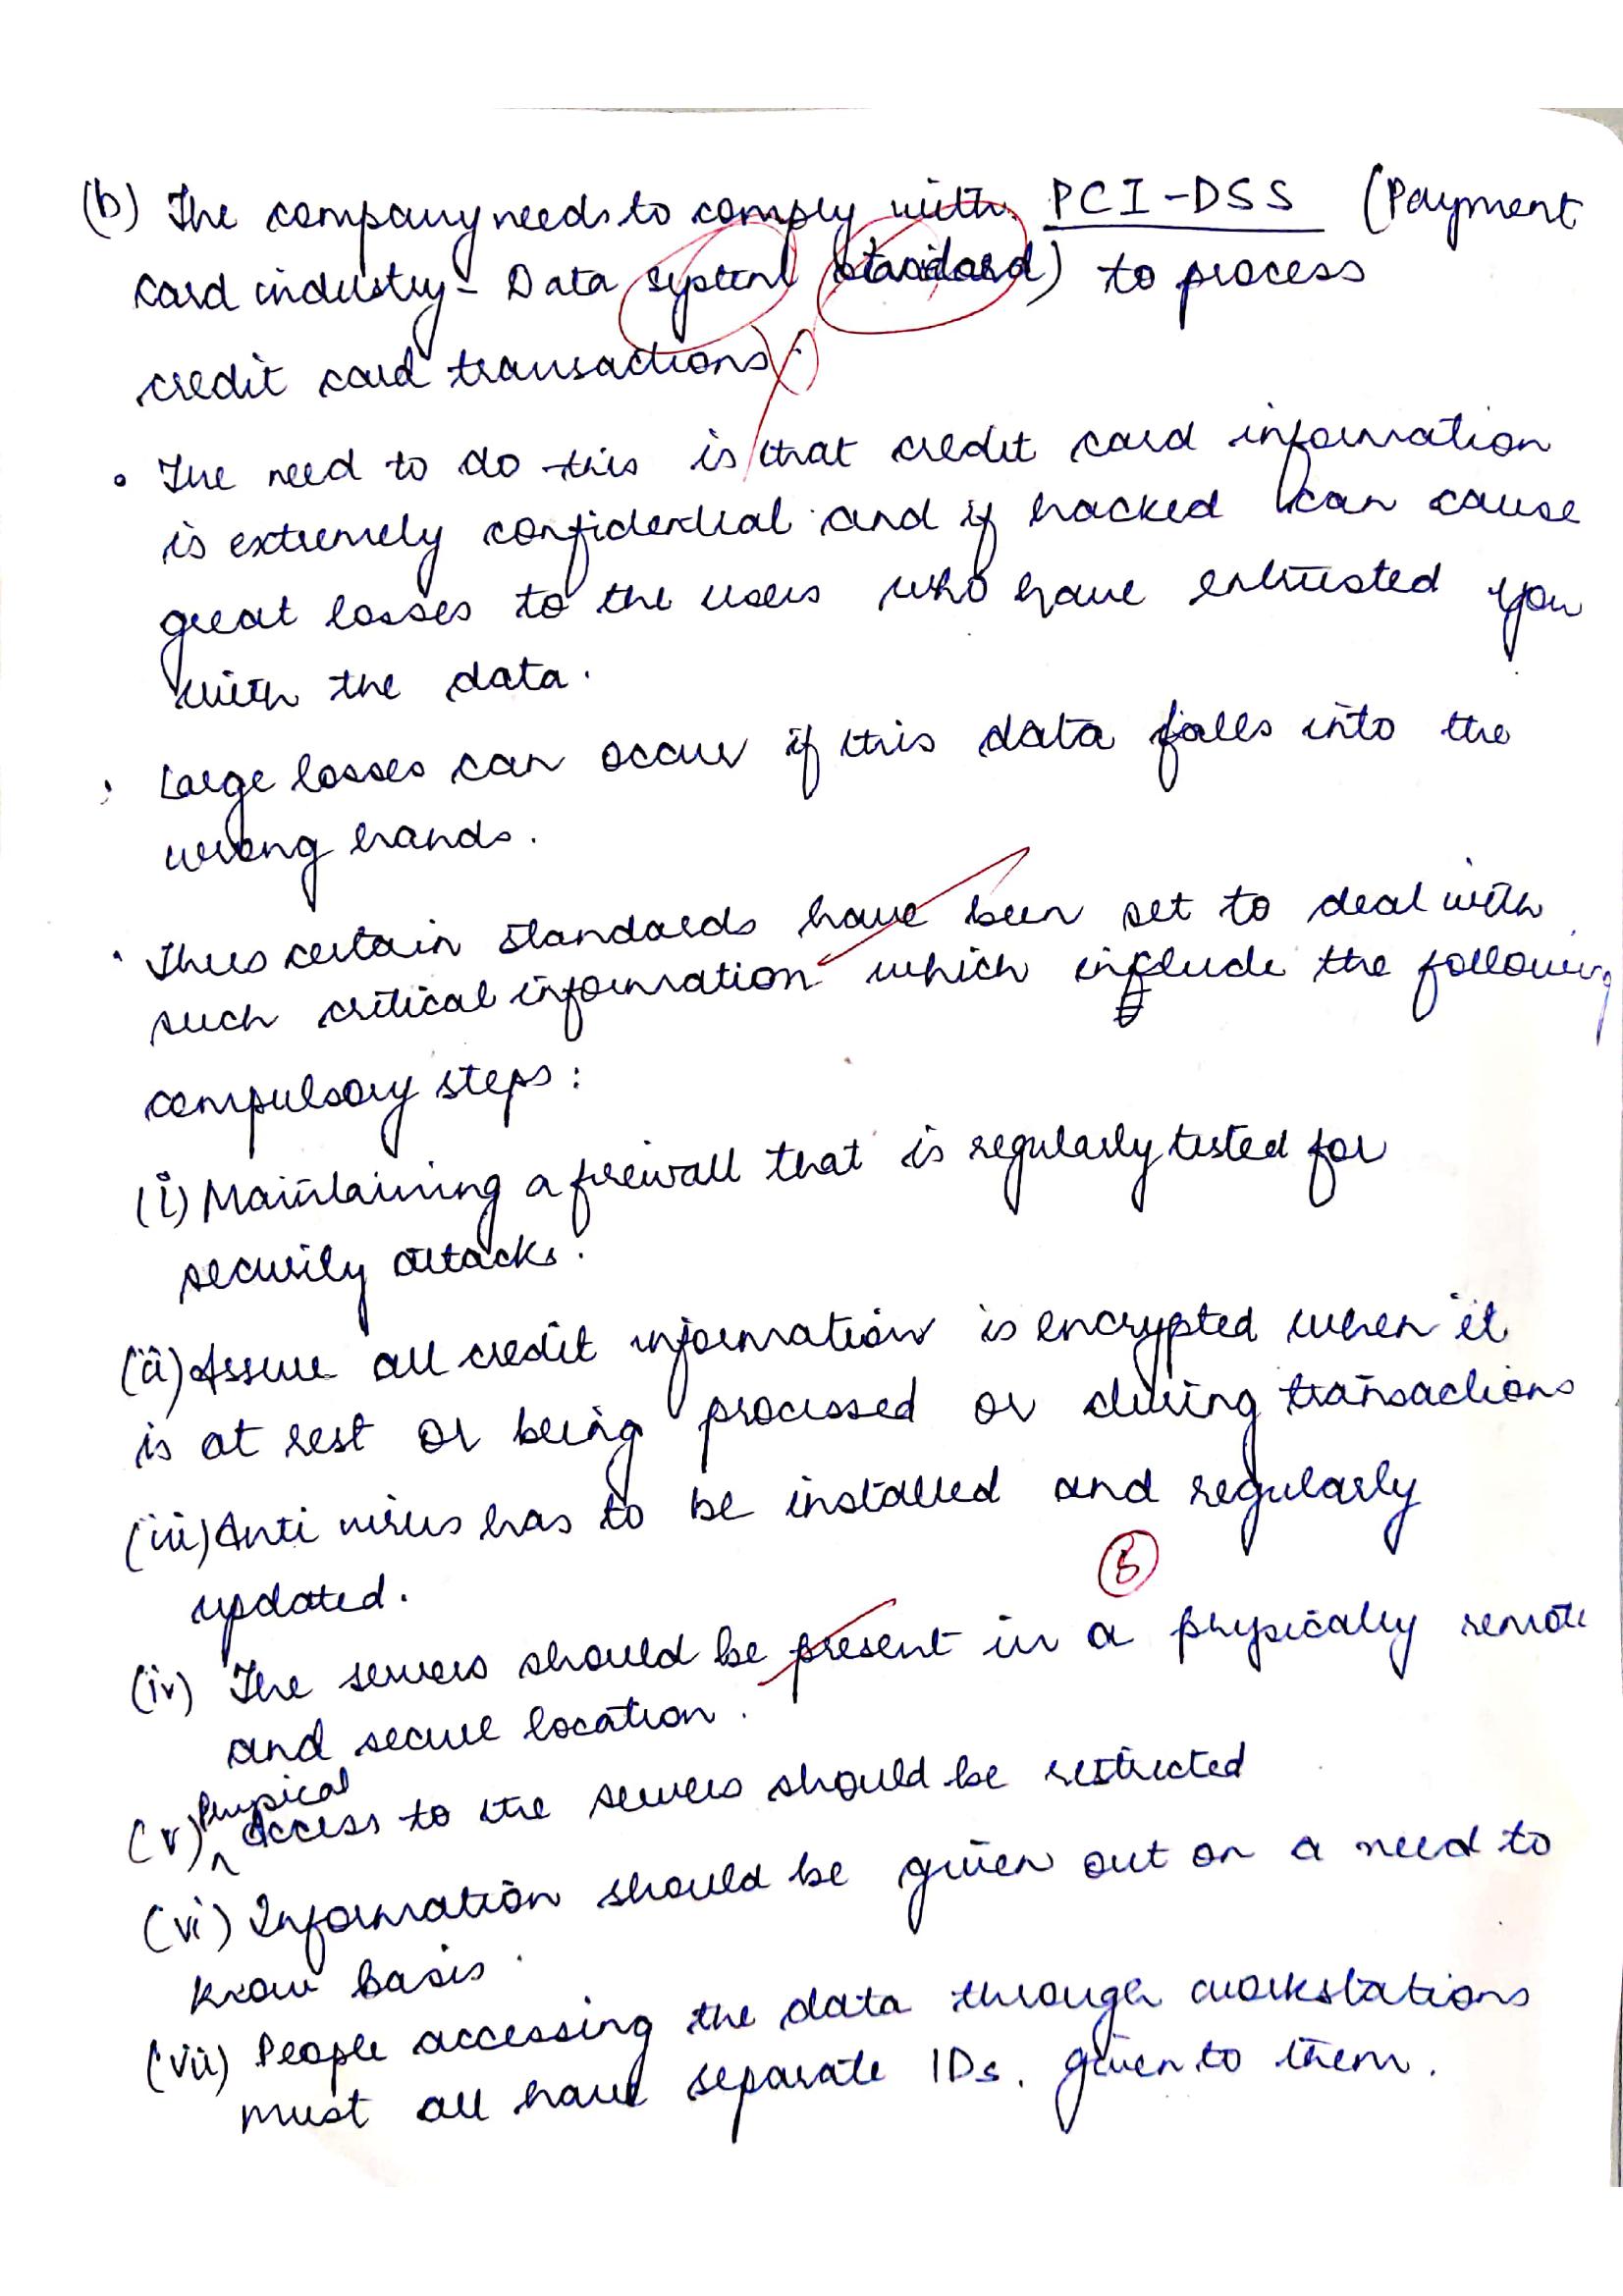 (b) The company needs to comply with PCI-DSS (Payment
Card industry - Data system standard) to process
credit card transactions.
• The need to do this is that credit card information
is extremely confidential and if hacked can cause
great losses to the users who have entrusted you
with the data.
• Large losses can occur if this data falls into the
wrong hands.
• Thus certain standards have been set to deal with
such critical information which include the following
compulsory steps:
(i) Maintaining a firewall that is regularly tested for
security attacks.
(ii) Assure all credit information is encrypted when it
is at rest or being processed or during transactions
(iii) Anti virus has to be installed and regularly
updated.
(iv) The servers should be present in a physically remote
and secure location.
(v) Physical Access to the servers should be restricted
(vi) Information should be given out on a need to
know basis.
(vii) People accessing the data through workstations
must all have separate IDs. given to them.